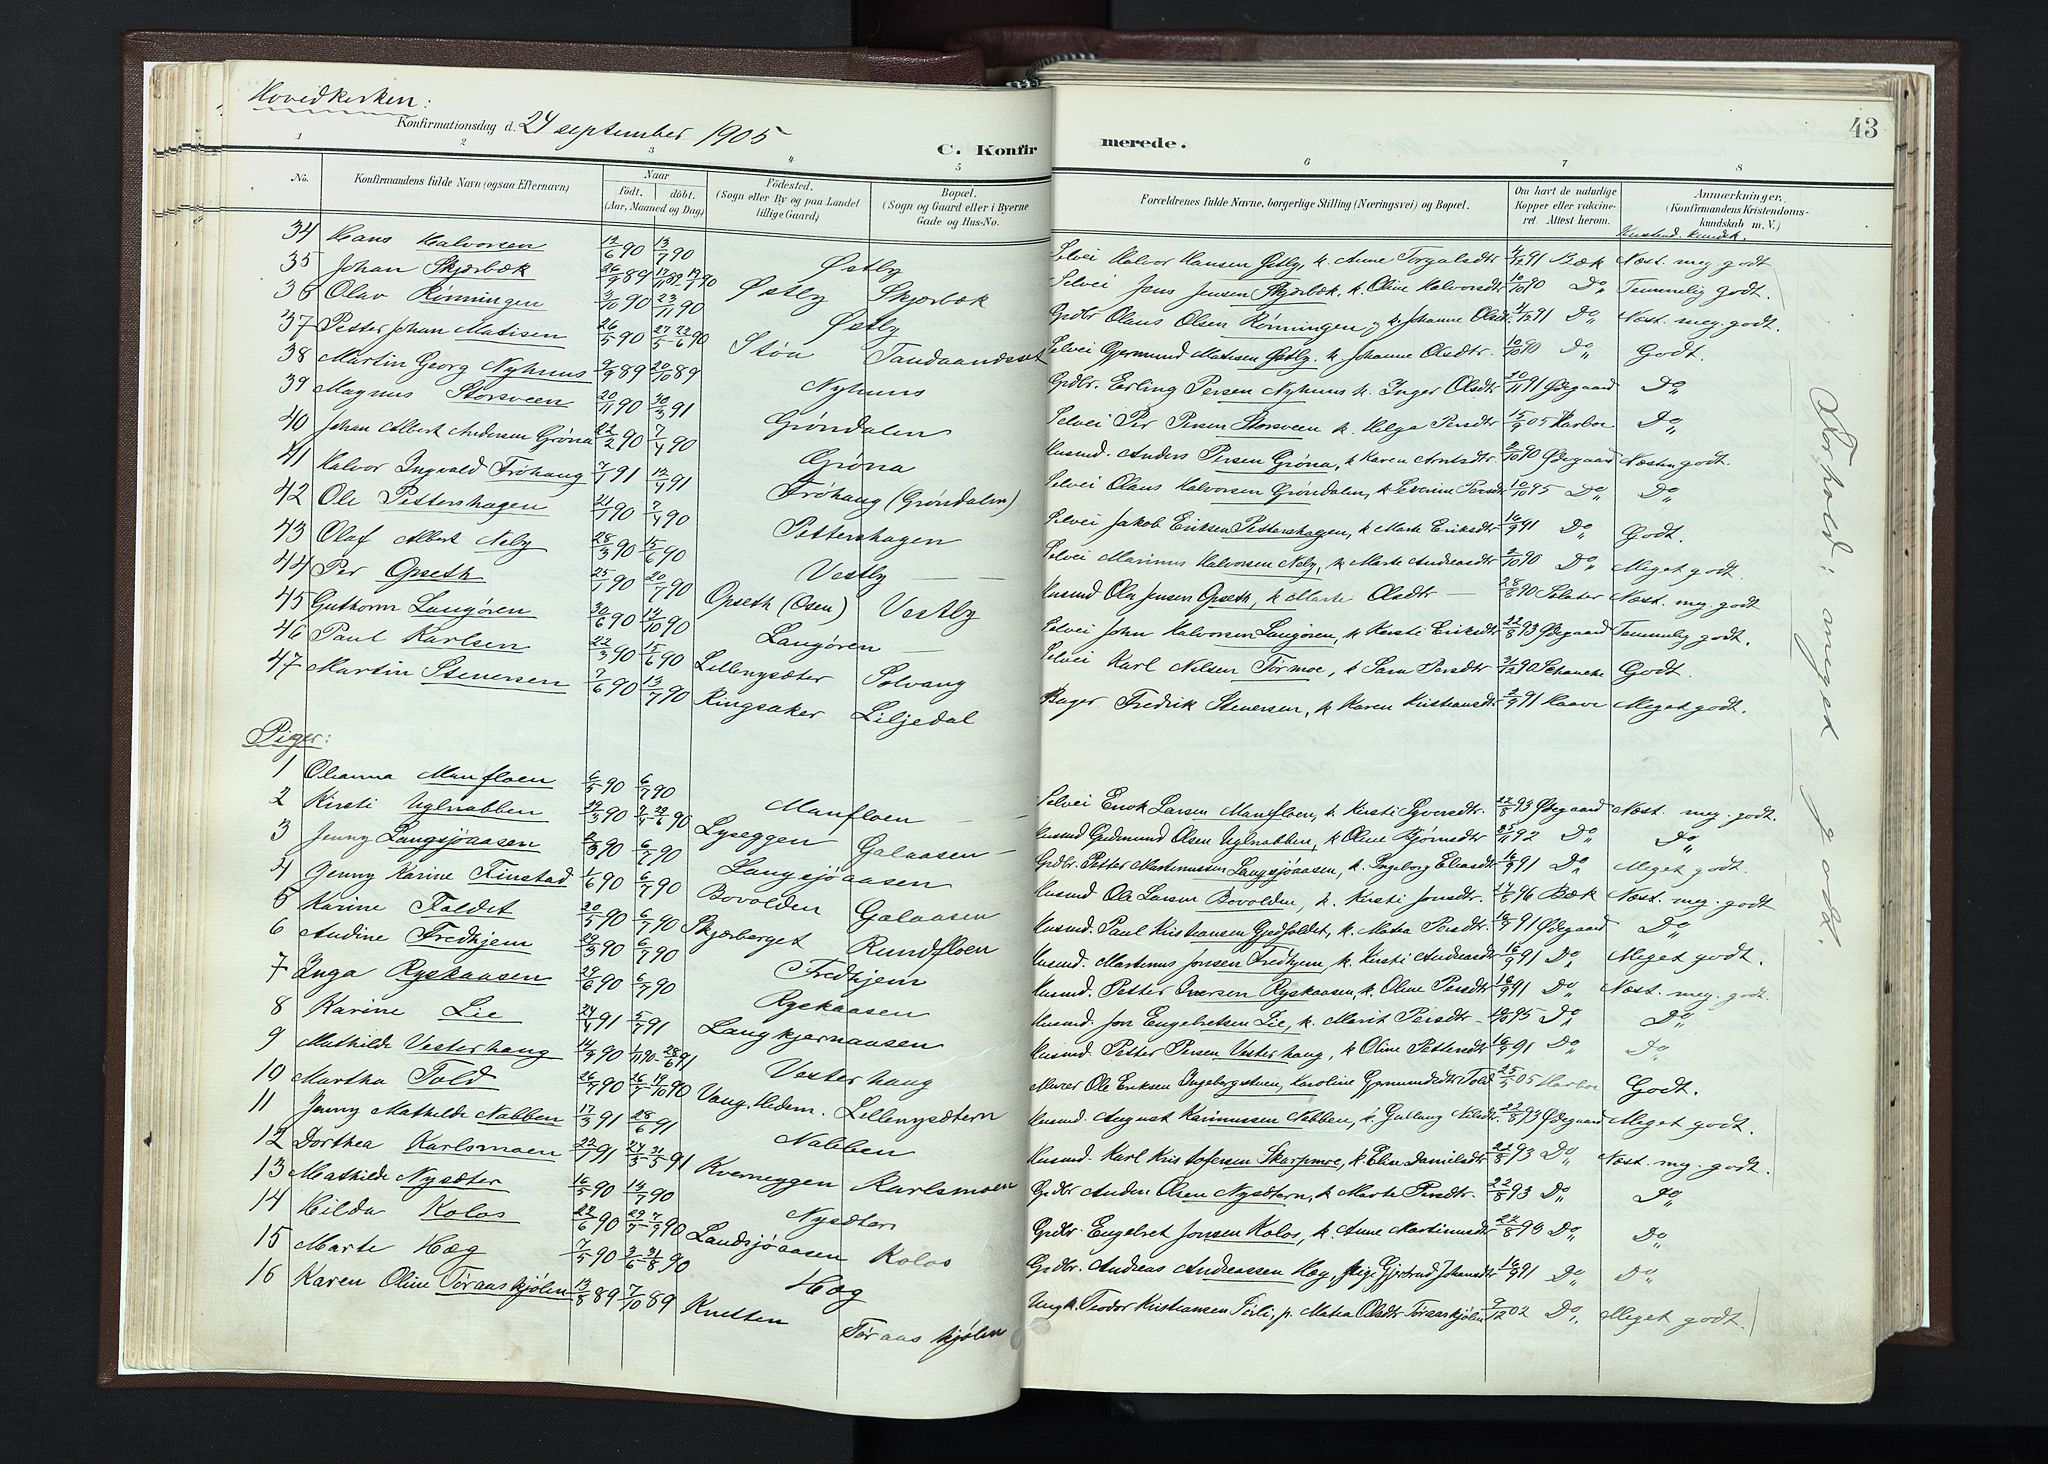 Hovedkirken:
Konfirmationsdag d. 24 september 1905
C. Konfirmerede.
43
1 2 3 4 5 6 7 8
No. Konfirmandens fulde Navn (ogsaa Efternavn) Naar födt. döbt. (Aar, Maaned og Dag) Födested. (Sogn eller By og paa Landet tillige Gaard) Bopæl. (Sogn og Gaard eller i Byerne Gade og Hus-No. Forældrenes fulde Navne, borgerlige Stilling (Næringsvei) og Bopæl. Om havt de naturlige Kopper eller vaccineret. Attest herom. Anmærkninger. (Konfirmandens Kristendomskundskab m. V.)
34 Hans Halvorsen 12/6 90 13/7 90 Østby Selvei Halvor Hansen Østby, k. Anne Torgalsdtr 4/12 91 Bæk Næst. meg. godt
35 Johan Skjærbæk Østby Skjærbæk Selvei Jens Jensen Skjærbæk, k. Oline Halvorsdtr 10/10 90 Do Temmelig godt.
36 Olav Rønningen 3/10 90 23/11 90 Østby Grdbr Olaus Olsen Rønningen, k. Johanne Olsdtr. 4/12 91 Do Næst. meg. godt.
37 Petter Johan Matisen 26/5 90 Støa Tandaandeset Selvei Gjermund Matisen Østby, k Johanne Olsdtr. 10/10 90 Do Godt.
38 Martin Georg Nyhuus 9/9 89 20/10 89 Nyhuus Grdbr. Erling Persen Nyhuus k. Inger Olsdtr 91 Ødegaard Do
39 Magnus Storsveen 20/11 90 30/3 91 Grøndalen Selvei Per Persen Storsveen k. Helga Persdtr 15/9 05 Harboe Do
40 Johan Albert Andersen Grøna 22/2 90 7/4 90 Grøna Husmd. Anders Persen Grøna, k Karen Arntsdtr 2/10 90 Ødegaard Næsten godt.
41 Halvor Ingvald Frøhaug 7/1 91 12/4 91 Frøhaug (Grøndalen) Selvei Olaus Halvorsen Grøndalen, k Severine Persdtr 10/10 95 Do Do
42 Ole Pettershagen 21/1 90 7/4 90 Pettershagen Selvei Jakob Eriksen Pettershagen, k Marte Eriksdtr 16/9 91 Do Godt.
43 Olaf Albert Neby 28/3 90 15/6 90 Vestby Selvei Marinus Halvorsen Neby, k Marte Andreasdtr 2/10 90 Do Meget godt.
44 Per Opseth 25/1 90 20/7 90 Opseth (Osen) Vestby Husmd Ola Jensen Opseth, k Marte Olsdtr 28/8 90 Næst. mg. godt
45 Guthorm Langøren 30/6 90 12/10 90 Langøren Selvei John Halvorsen Langøren, k Kersti Eriksdtr 22/8 93 Ødegaard Temmelig godt.
46 Paul Karlsen 22/3 90 15/6 90 Lillenysæter Solvang Selvei Karl Nilsen Tørmoe, k Sara Persdtr 3/12 90 Schancke Godt.
47 Martin Stenersen 7/6 90 13/7 90 Ringsaker Liljedal Bager Fredrik Stenersen, k Karen Kristiansdtr 2/9 91 Haave Meget godt.
Forhold: meget godt.
Piger:
1 Olianna Manfloen 6/5 90 6/7 90 Manfloen Selvei Enok Larsen Manfloen, k Kirsti Syversdtr 22/8 93 Ødegaard Næst. meg. godt.
2 Kirsti Uglnabben 90 Lyseggen Galaasen Husmd Gudmund Olsen Uglnabben, k Oline Bjørnsdtr 92 Do Do
3 Jenny Langsjøaasen 2/3 90 6/7 90 Langsjøaasen Grdbr. Petter Martinussen Langsjøaasen, k. Ingeborg Eliasdtr 16/9 91 Do Meget godt.
4 Jenny Karine Finstad 1/6 90 6/7 90 Bovolden Galaasen Husmd Ole Larsen Bovolden, k. Kirsti Jonsdtr. 96 Bæk Næst. meg. godt
5 Karine Foldet 20/5 90 6/7 90 Skjærberget Rundfloen Husmd. Paul Kristiansen Gjedfoldet, k. Matea Persdtr. 91 Ødegaard Do
6 Andine Fredhjem 90 6/7 90 Fredhjem Husmd. Martinus Jonsen Fredhjem, k. Kirsti Andreasdtr 16/9 91 Do Meget godt.
7 Inga Ryskaasen 90 6/7 90 Ryskaasen Husmd. Petter Iversen Ryskaasen, k. Oline Persdtr 16/9 91 Do Næst. meg. godt.
8 Karine Lie 91 5/7 91 Langkjernaasen Husmd. Jon Engebretsen Lie, k. Marit Persdtr 95 Do Do
9 Mathilde Vesterhaug 90 Vesterhaug Husmd. Petter Persen Vesterhaug, k Oline Pettersdtr 16/9 91 Do Do
10 Martha Told 26/7 90 Vang, Hedem. Lillenysætern Murer Ole Eriksen Ingeborgstuen, Karoline Gjermundsdtr Told 25/5 05 Harboe Godt.
11 Jenny Mathilde Nabben 17/3 91 28/6 91 Nabben Husmd. August Rasmussen Nabben, k. Gullaug Nilsdtr 22/8 93 Ødegaard Meget godt.
12 Dorthea Karlsmoen 22/1 91 Kverneggen Karlsmoen Husmd. Karl Kristofersen Skarpmoe, k. Elise Danielsdtr 22/8 93 Do Næst. mg. godt.
13 Mathilde Nysæter 16/5 90 13/7 90 Nysæter Grdbr Anders Olsen Nysætern, k Marte Persdtr. 22/8 93 Do Do
14 Hilda Kolos 22/6 90 Landsjøaasen Kolos Grdbr. Engebret Jonsen Kolos, k. Anne Martinusdtr 22/8 93 Do Do
15 Marte Hæg 7/5 90 3/6 31/8 90 Hæg Grdbr. Andreas Andreassen Hæg, Pige Gjertrud Johansdtr 16/9 91 Do Do
16 Karen Oline Tøraaskjølen 13/8 89 7/10 89 Knetten Tøraaskjølen Ungk. Teodor Kristiansen, p. Matea Olsdtr Tøraaskjølen 9/12 02 Do Meget godt.